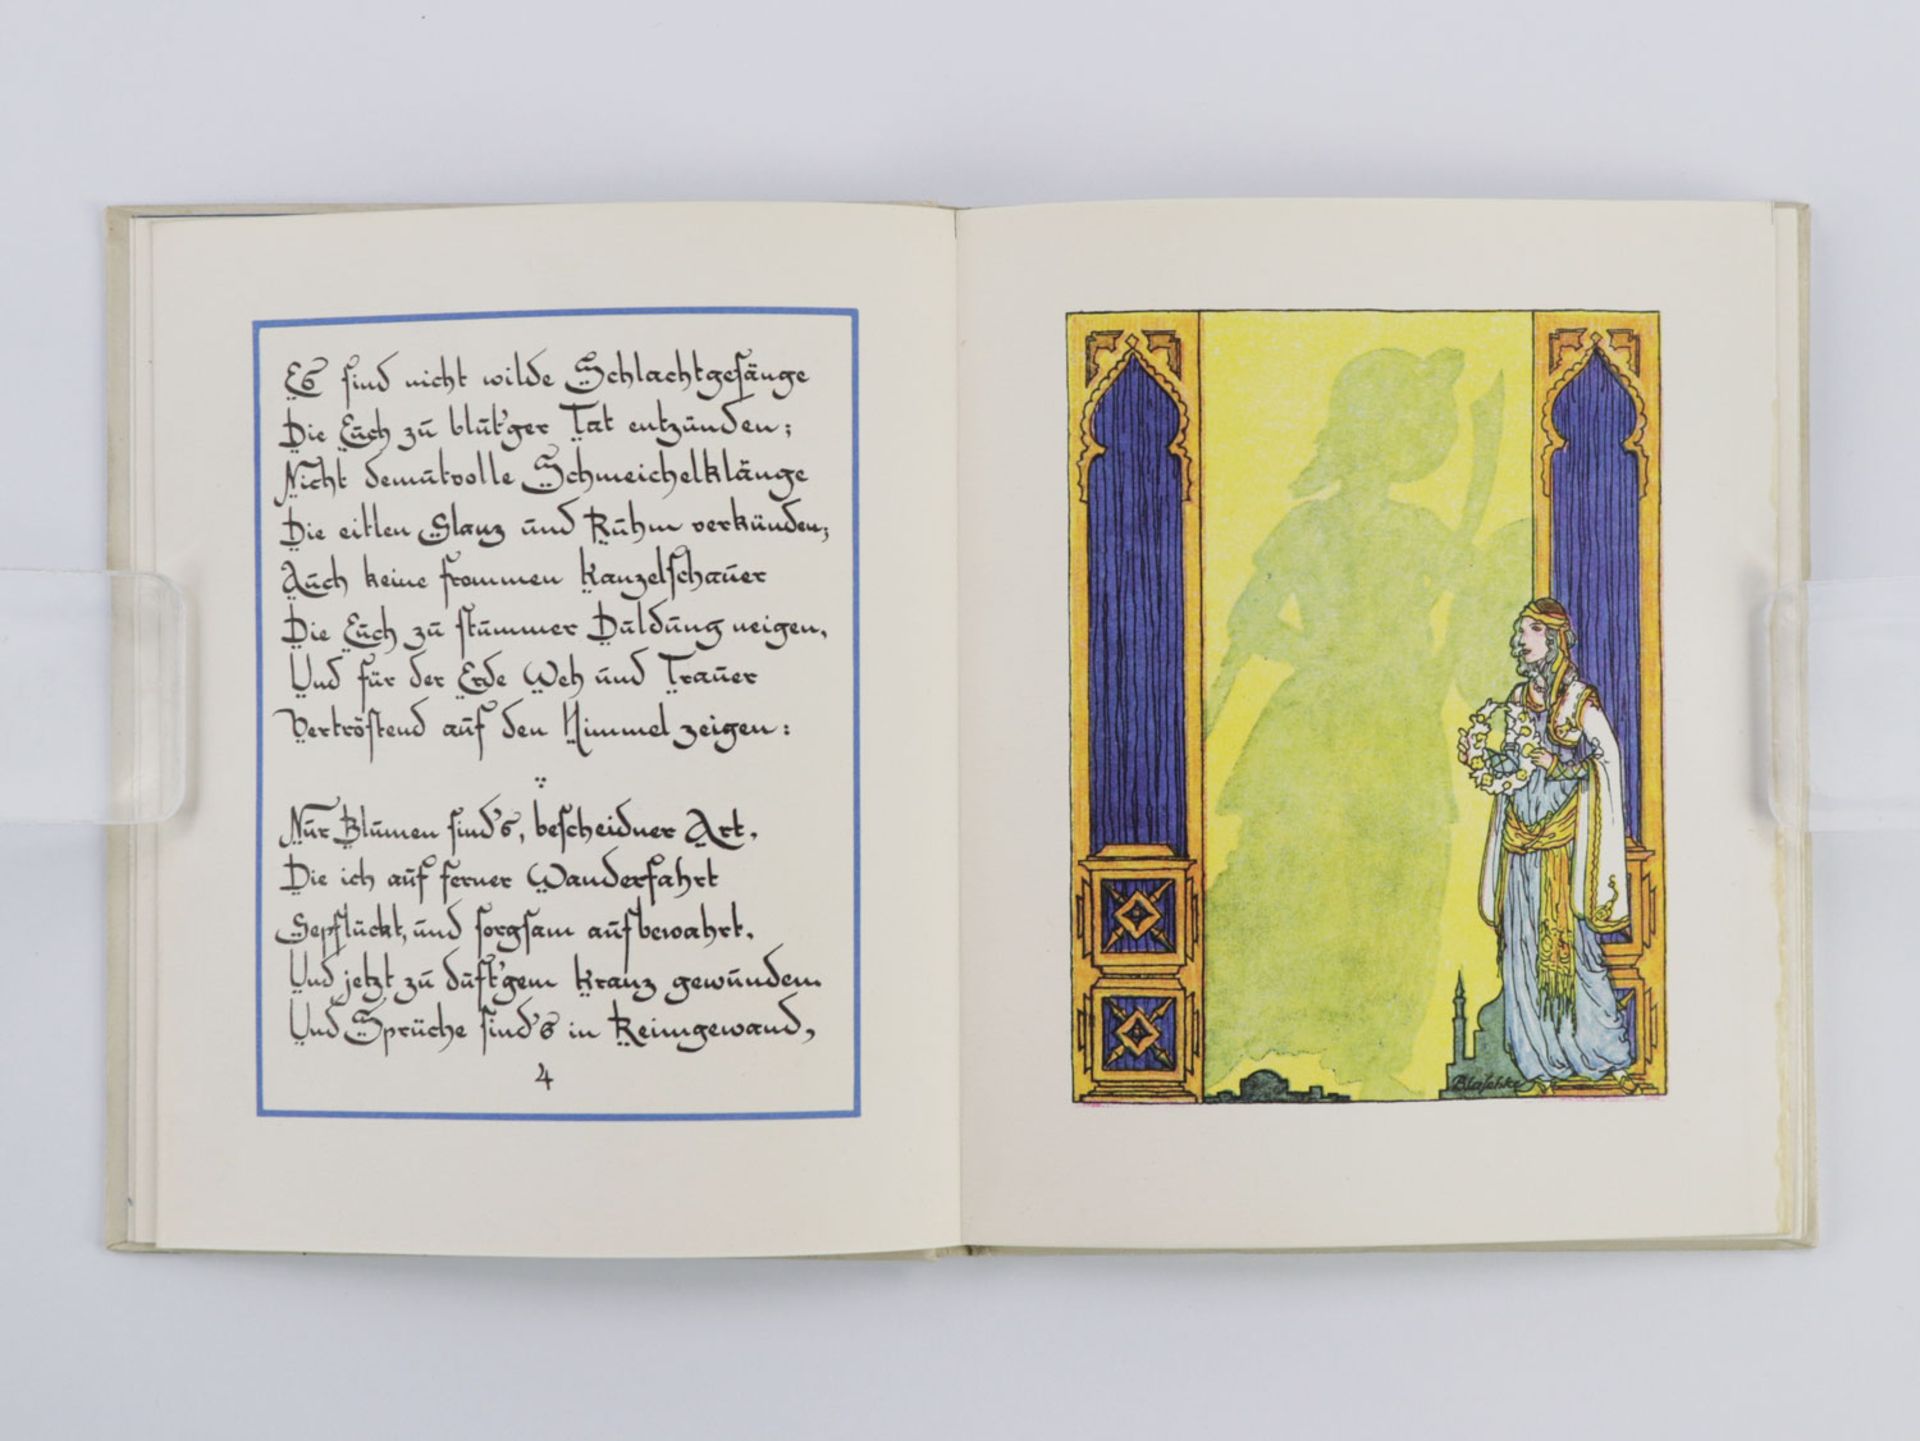 Es sind nicht wilde Schlachtgesänge
Die Euch zu blut'ger Tat entzünden;
Nicht demutvolle Schmeichelklänge
Die eitlen Glanz und Ruhm verkünden;
Auch keine frommen Kanzelschauer
Die Euch zu stummer Duldung neigen,
Und für der Erde Weh und Trauer
Vertröstend auf den Himmel zeigen:
Nur Blumen sind's, bescheidner Art,
Die ich auf ferner Wanderfahrt
Gepflückt, und sorgsam aufbewahrt,
Und jetzt zu duft'gem Kranz gewunden.
Und Sprüche sind's in Reimgewand,
4
Blaschke